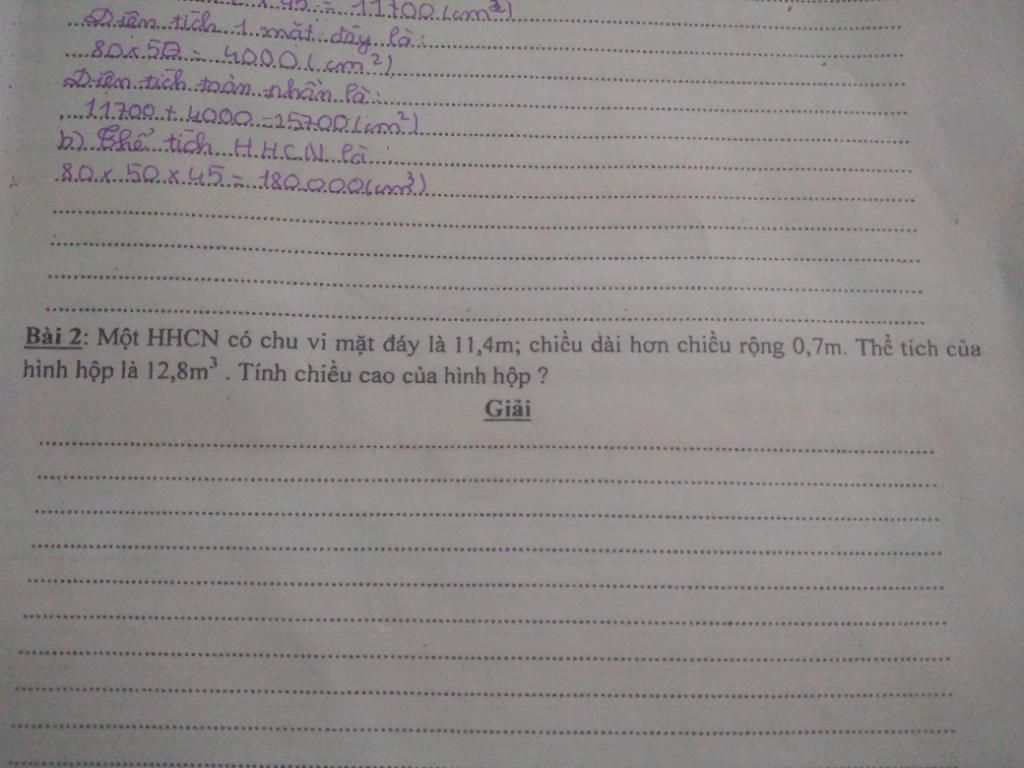 x 45 = 11700 (cm²)
Diện tích 1 mặt đáy là:
80 x 50 = 4000 (cm²)
Diện tích toàn phần là:
11700 + 4000 = 15700 (cm²)
b) Thể tích HHCN là
80 x 50 x 45 = 180000 (cm³)
Bài 2: Một HHCN có chu vi mặt đáy là 11,4m; chiều dài hơn chiều rộng 0,7m. Thể tích của
hình hộp là 12,8m³ . Tính chiều cao của hình hộp ?
Giải